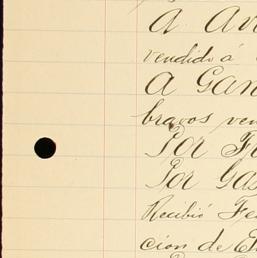 A Av
vendido á
A Gan
bravos ven
Por F
Por Gas
Recibió Fe
cion de